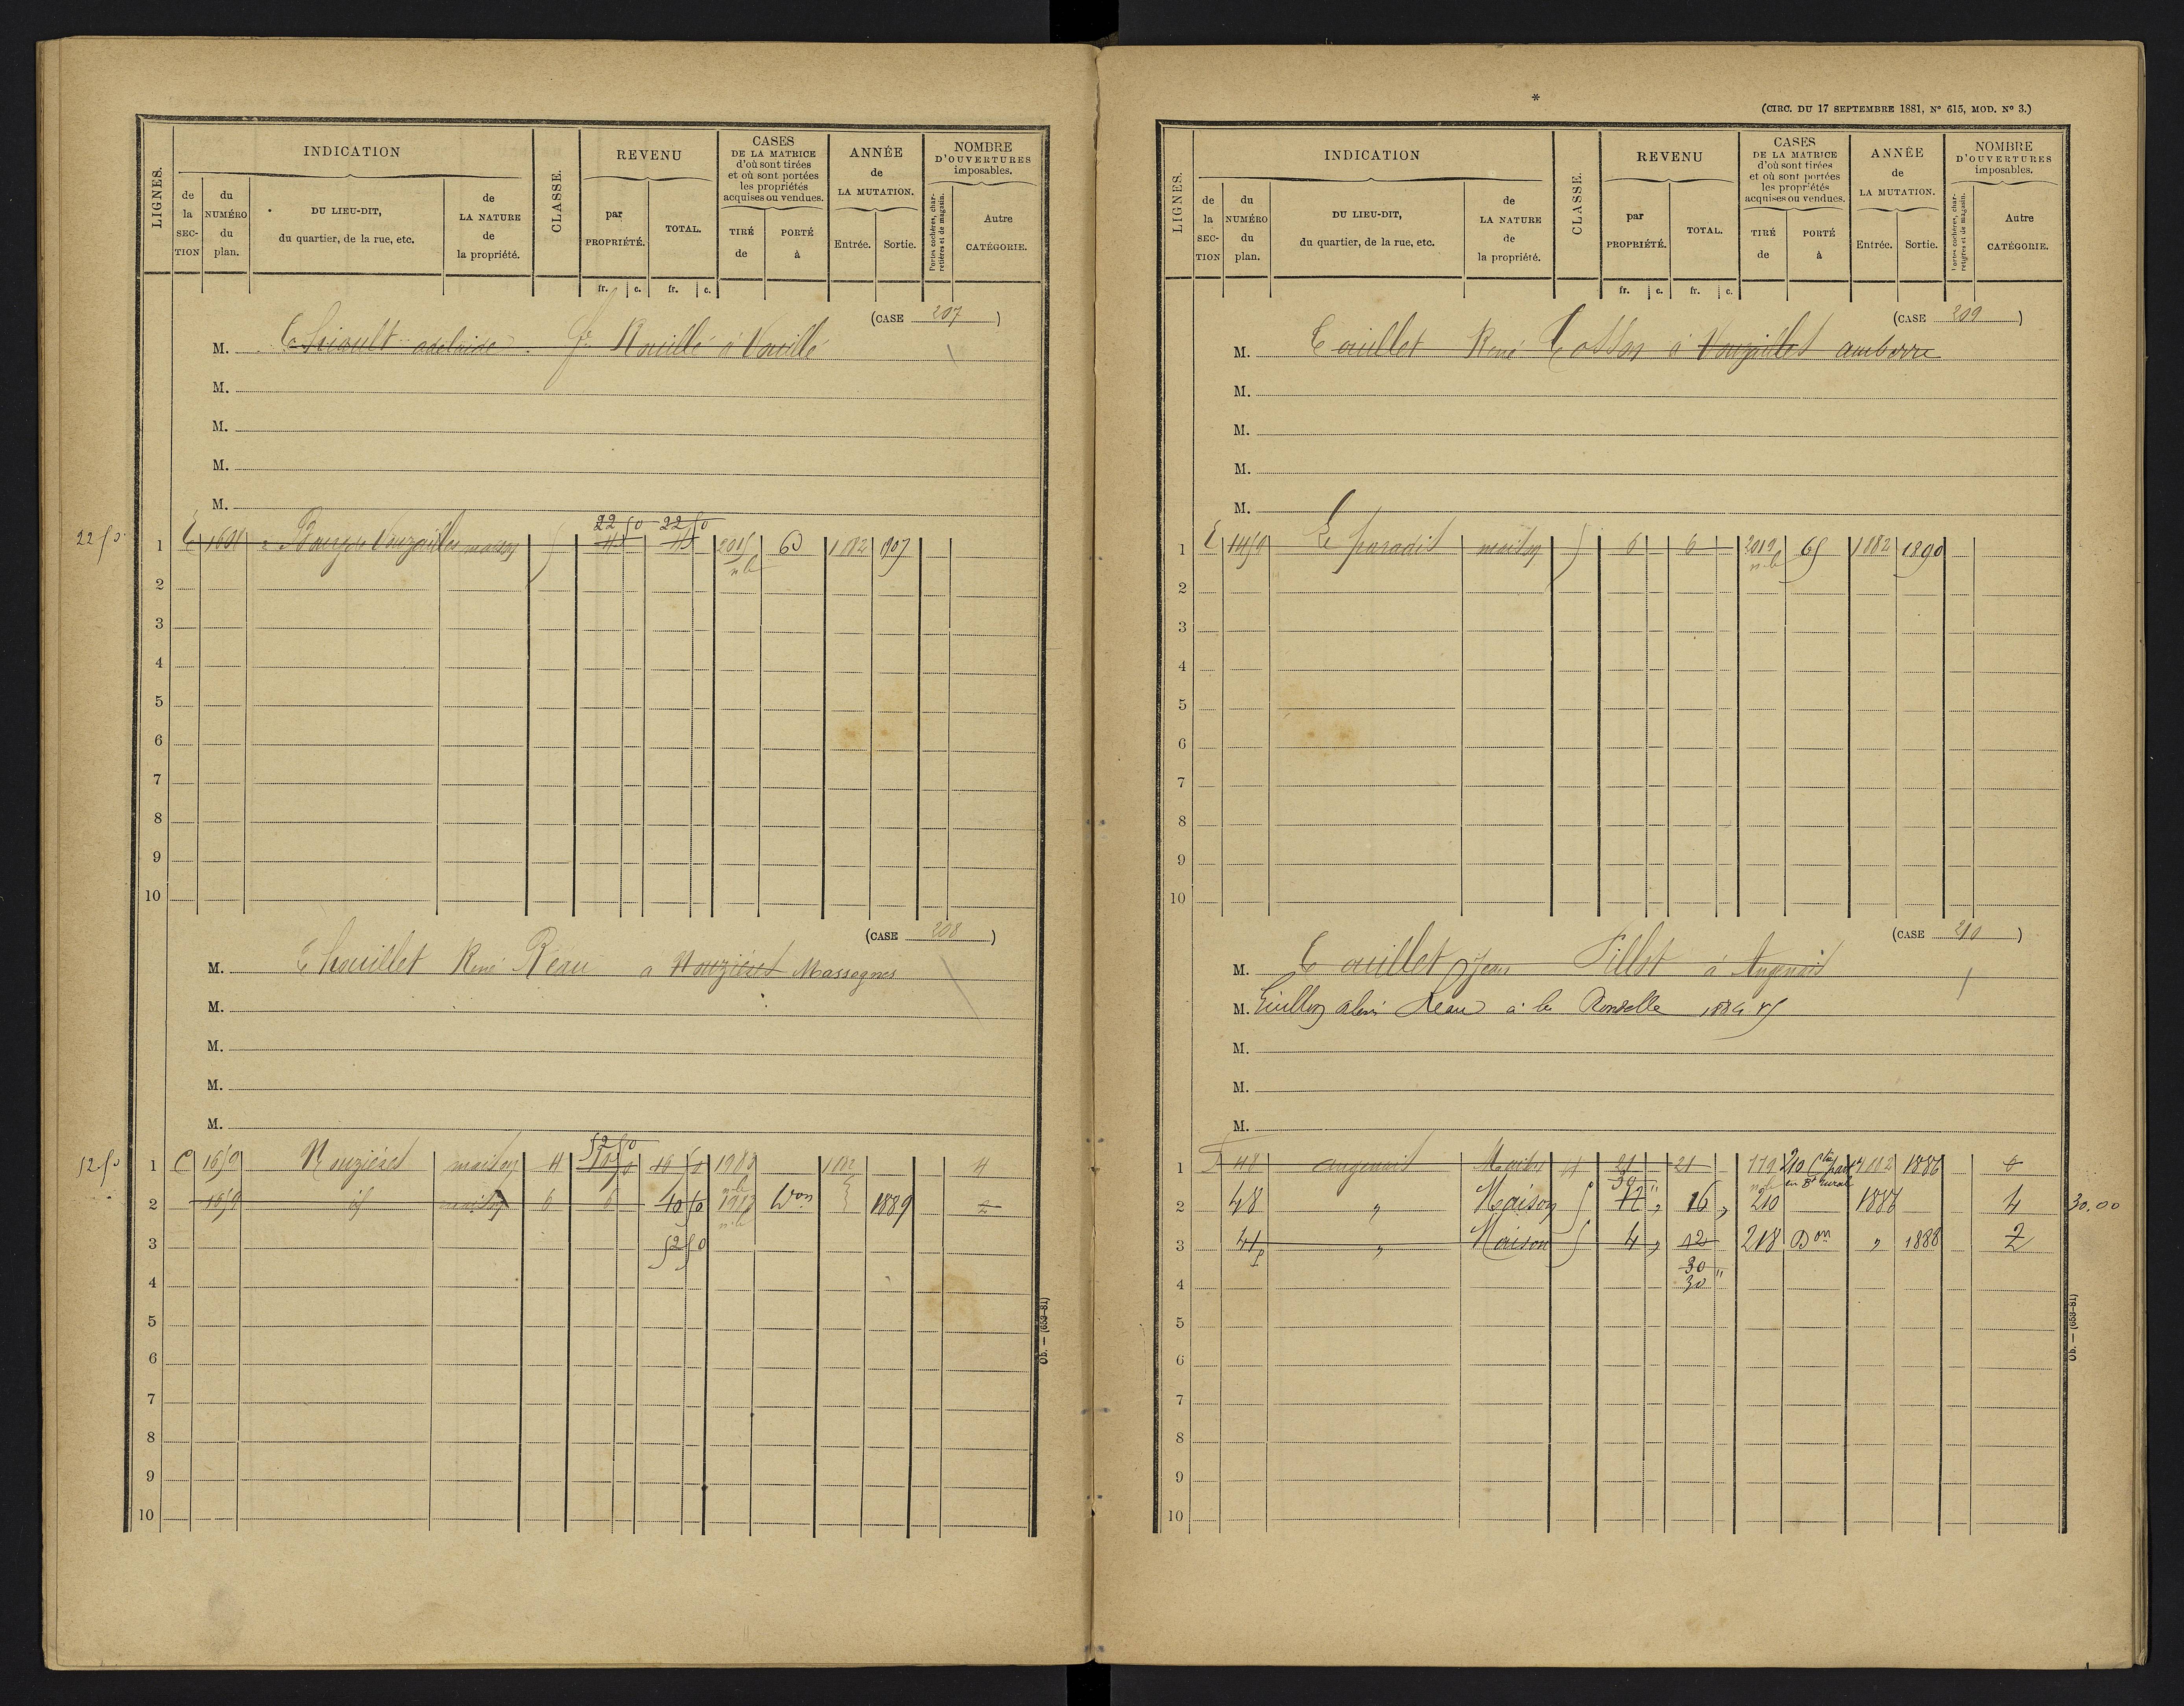 LIGNES.
INDICATION
de la SECTION
du NUMÉRO du plan.
DU LIEU-DIT, du quartier, de la rue, etc.
de LA NATURE de la propriété.
CLASSE.
REVENU
par PROPRIÉTÉ.
TOTAL.
fr. c. fr. c.
CASES DE LA MATRICE d'où sont tirées et où sont portées les propriétés acquises ou vendues.
TIRÉ de
PORTÉ à
ANNÉE de LA MUTATION.
Entrée. Sortie.
NOMBRE D'OUVERTURES imposables.
Portes cochères, charretières et de magasin.
Autre CATÉGORIE.
(CASE 207)
M. adelaide Rouillé à Vouillé
M.
M.
M.
M.
22 50
22 50 22 50
1 maison 2015 60 1882 1907
n-b
2
3
4
5
6
7
8
9
10
(CASE 208)
M. Thouillet René Réau a Nouzières Massognes
M.
M.
M.
M.
52 50
52 50
1 C 1659 Nouzières maison 4 10 50 1983 1882 4
n-b
2 1659 id maison 6 6 10 50 1983 1889 2
n-b
3 52 50
4
5
6
7
8
9
10
Ob. — (653-81)
*
(CIRC. DU 17 SEPTEMBRE 1881, Nº 615, MOD. Nº 3.)
LIGNES.
INDICATION
de la SECTION
du NUMÉRO du plan.
DU LIEU-DIT, du quartier, de la rue, etc.
de LA NATURE de la propriété.
CLASSE.
REVENU
par PROPRIÉTÉ.
TOTAL.
fr. c. fr. c.
CASES DE LA MATRICE d'où sont tirées et où sont portées les propriétés acquises ou vendues.
TIRÉ de
PORTÉ à
ANNÉE de LA MUTATION.
Entrée. Sortie.
NOMBRE D'OUVERTURES imposables.
Portes cochères, charretières et de magasin.
Autre CATÉGORIE.
(CASE 209)
M. Touillet René à Vouzailles amberre
M.
M.
M.
M.
1 E 1450 Le paradis maison 5 6 6 2019 65 1882 1890
n-b
2
3
4
5
6
7
8
9
10
(CASE 210)
M. Touillet Jean à Angenais
M. Réau à la 1884
M.
M.
M.
1 48 angenais Maison 4 21 21 179 210 1882 1886 6
n-b en Bt rural
30 "
2 48 " Maison 5 12 " 16 " 210 1886 4 30.00
3 41p " Maison 5 4 " 12 218 Don " 1888 2
30
4 30 "
5
6
7
8
9
10
Ob. — (653-81)